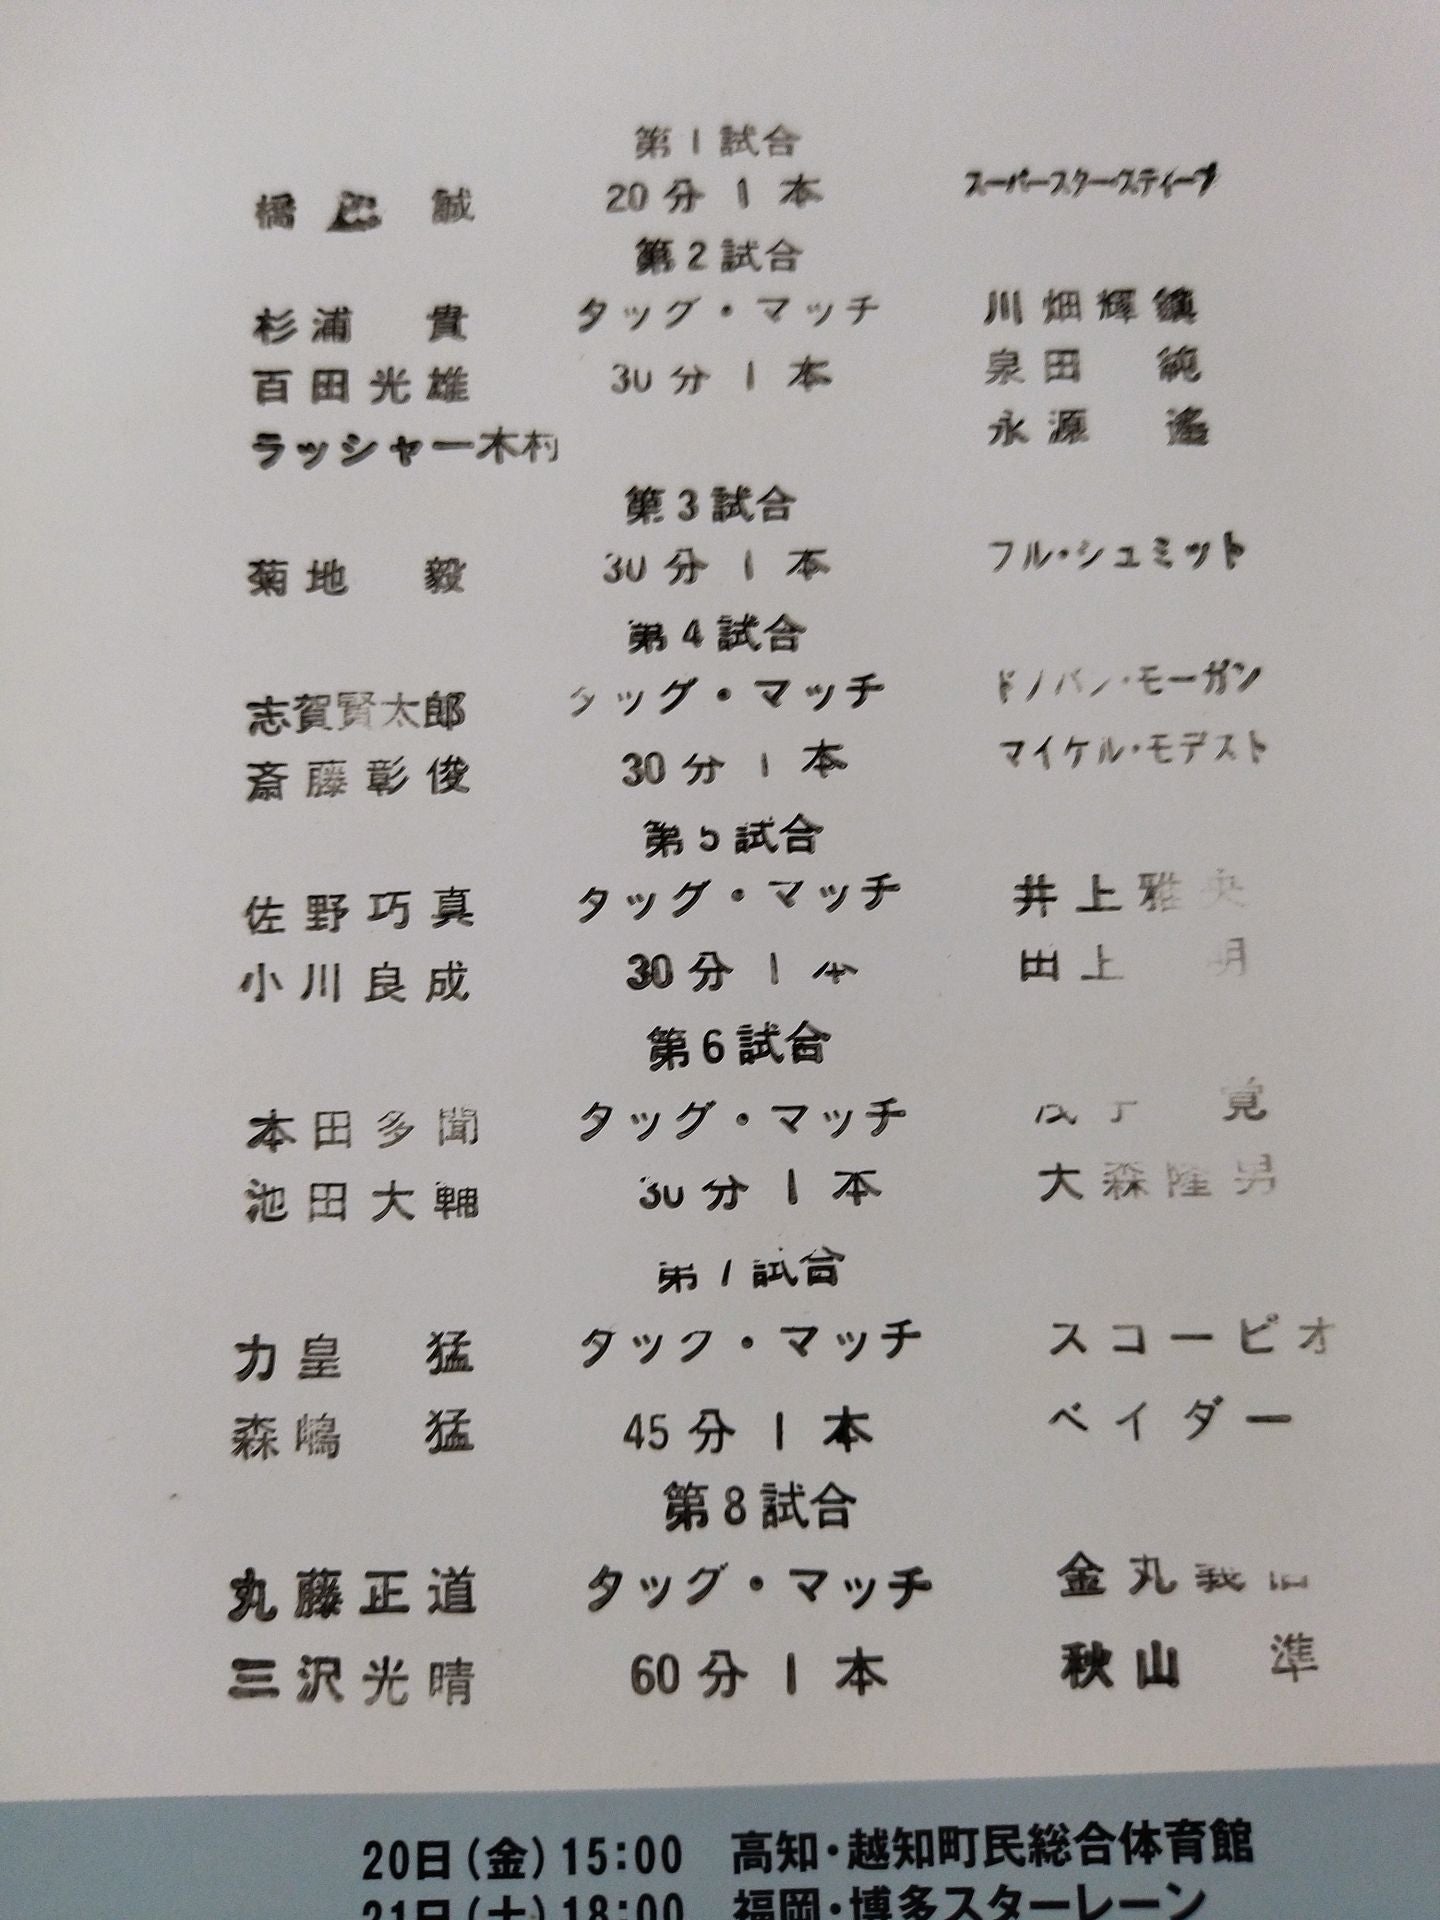 第1試合
橋 誠 20分1本 スーパースター・スティーブ
第2試合
杉浦 貴 タッグ・マッチ 川畑輝鎮
百田光雄 30分1本 泉田 純
ラッシャー木村 永源 遙
第3試合
菊地 毅 30分1本 フル・シュミット
第4試合
志賀賢太郎 タッグ・マッチ ドノバン・モーガン
斎藤彰俊 30分1本 マイケル・モデスト
第5試合
佐野巧真 タッグ・マッチ 井上雅央
小川良成 30分1本 田上 明
第6試合
本田多聞 タッグ・マッチ 覚
池田大輔 30分1本 大森隆男
第7試合
力皇 猛 タッグ・マッチ スコーピオ
森嶋 猛 45分1本 ベイダー
第8試合
丸藤正道 タッグ・マッチ 金丸義信
三沢光晴 60分1本 秋山 準
20日(金)15:00 高知・越知町民総合体育館
21日(土)18:00 福岡・博多スターレーン